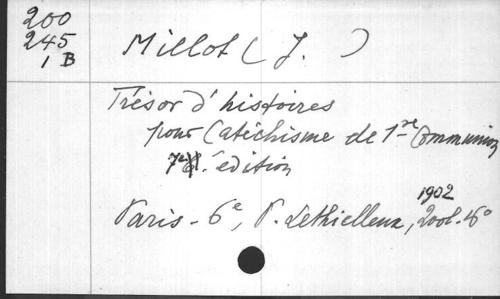 200
245
1 B
Millot ( J. )
Trésor d'histoires
pour Catéchisme de 1re Communion
7e édition
Paris - 6e, P. Lethielleux, 1902